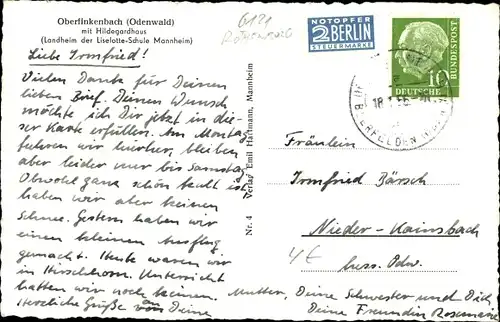 Oberfinkenbach (Odenwald)
mit Hildegardhaus
(Landheim der Liselotte-Schule Mannheim)
6121
NOTOPFER
2 BERLIN
STEUERMARKE
DEUTSCHE
BUNDESPOST
10
BEERFELDEN
Liebe Irmfried!
Vielen Dank für Deinen
lieben Brief. Deinen Wunsch
möchte ich Dir jetzt in die-
ser Karte erfüllen. Am Montag
fuhren wir hierher, bleiben
aber leider nur bis Samstag.
Obwohl ganz schön kalt ist
haben wir aber keinen
Schnee. Gestern haben wir
einen kleinen Ausflug
gemacht. Heute waren wir
in Hirschhorn. Unterricht
hatten wir noch keinen.
Herzliche Grüße an Deine
Mutter, Deine Schwester und Dich,
Deine Freundin Rosemarie
Nr. 4 Verlag Emil Hartmann, Mannheim
Fräulein
Irmfried Bärsch
Nieder-Kainsbach
hess. Odw.
4€